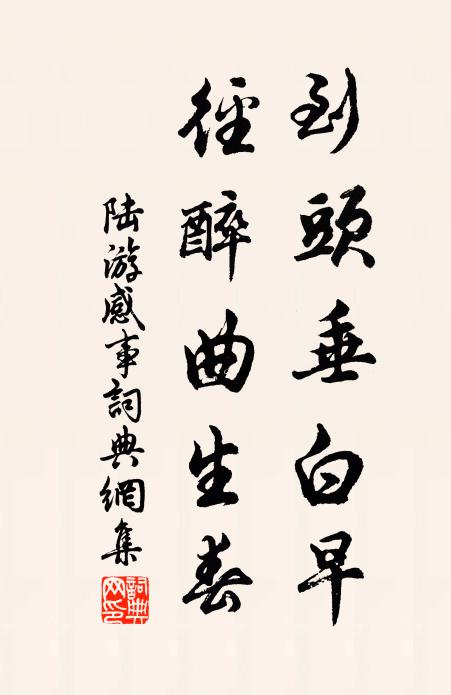 到頭垂白早
徑醉曲生春
陸游感事詞典網集
詞典网印